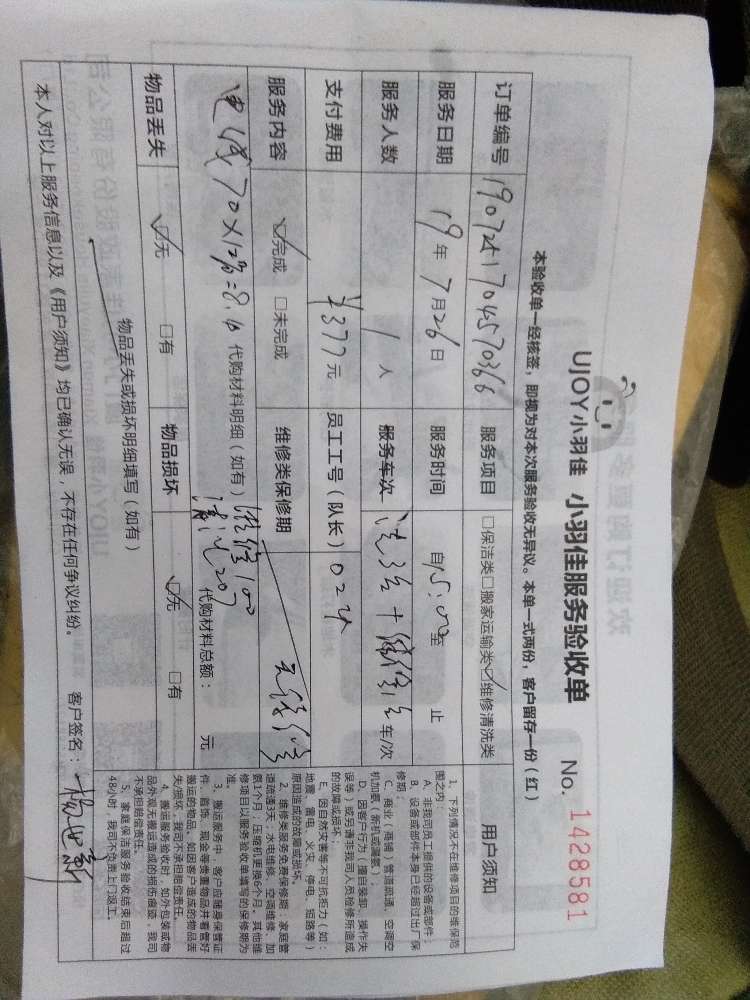 UJOY小羽佳 小羽佳服务验收单 No. 1428581
本验收单一经核签，即视为对本次服务验收无异议。本单一式两份，客户留存一份（红）
订单编号 1907241704570366 服务项目 □保洁类□搬家运输类☑维修清洗类
服务日期 19年7月26日 服务时间 自15:00至 止
服务人数 1人 服务车次 车/次
支付费用 ¥377元 员工工号（队长） 024
服务内容 ☑完成 □未完成 维修类保修期 无保修
代购材料明细（如有） 维修100
清洗207 代购材料总额： 元
物品丢失 ☑无 □有 物品损坏 ☑无 □有
物品丢失或损坏明细填写（如有）
本人对以上服务信息以及《用户须知》均已确认无误，不存在任何争议纠纷。 客户签名：
用户须知
1、下列情况不在维修项目的维保范
围之内：
A、非我司员工提供的设备或部件；
B、设备或部件本身已经超过出厂保
修期；
C、商业（商铺）管道疏通、空调空
机加氨（新机或漏氨）；
D、因客户行为（擅自装卸、操作失
误等）或另请非我司人员检修所造成
的故障或损坏；
E、因自然灾害等不可抗拒力（如：
地震、雷电、火灾、停电、短路等）
原因造成的故障或损坏。
2、维修类服务免费保修期：家庭管
道疏通3天；水电维修、空调维修、加
氨1个月；压缩机更换6个月。其他维
修项目以服务验收单填写的保修期为
准。
3、搬运服务中，客户应随身保管证
件、首饰、现金等贵重物品并看管好
搬运的物品，如因客户造成的物品丢
失/损坏，我司不承担赔偿责任。
4、搬运服务验收时，如外包装或物
品外观无搬运造成的损伤痕迹，我司
不承担赔偿责任。
5、家庭保洁服务验收结束后超过
48小时，我司不负责上门返工。